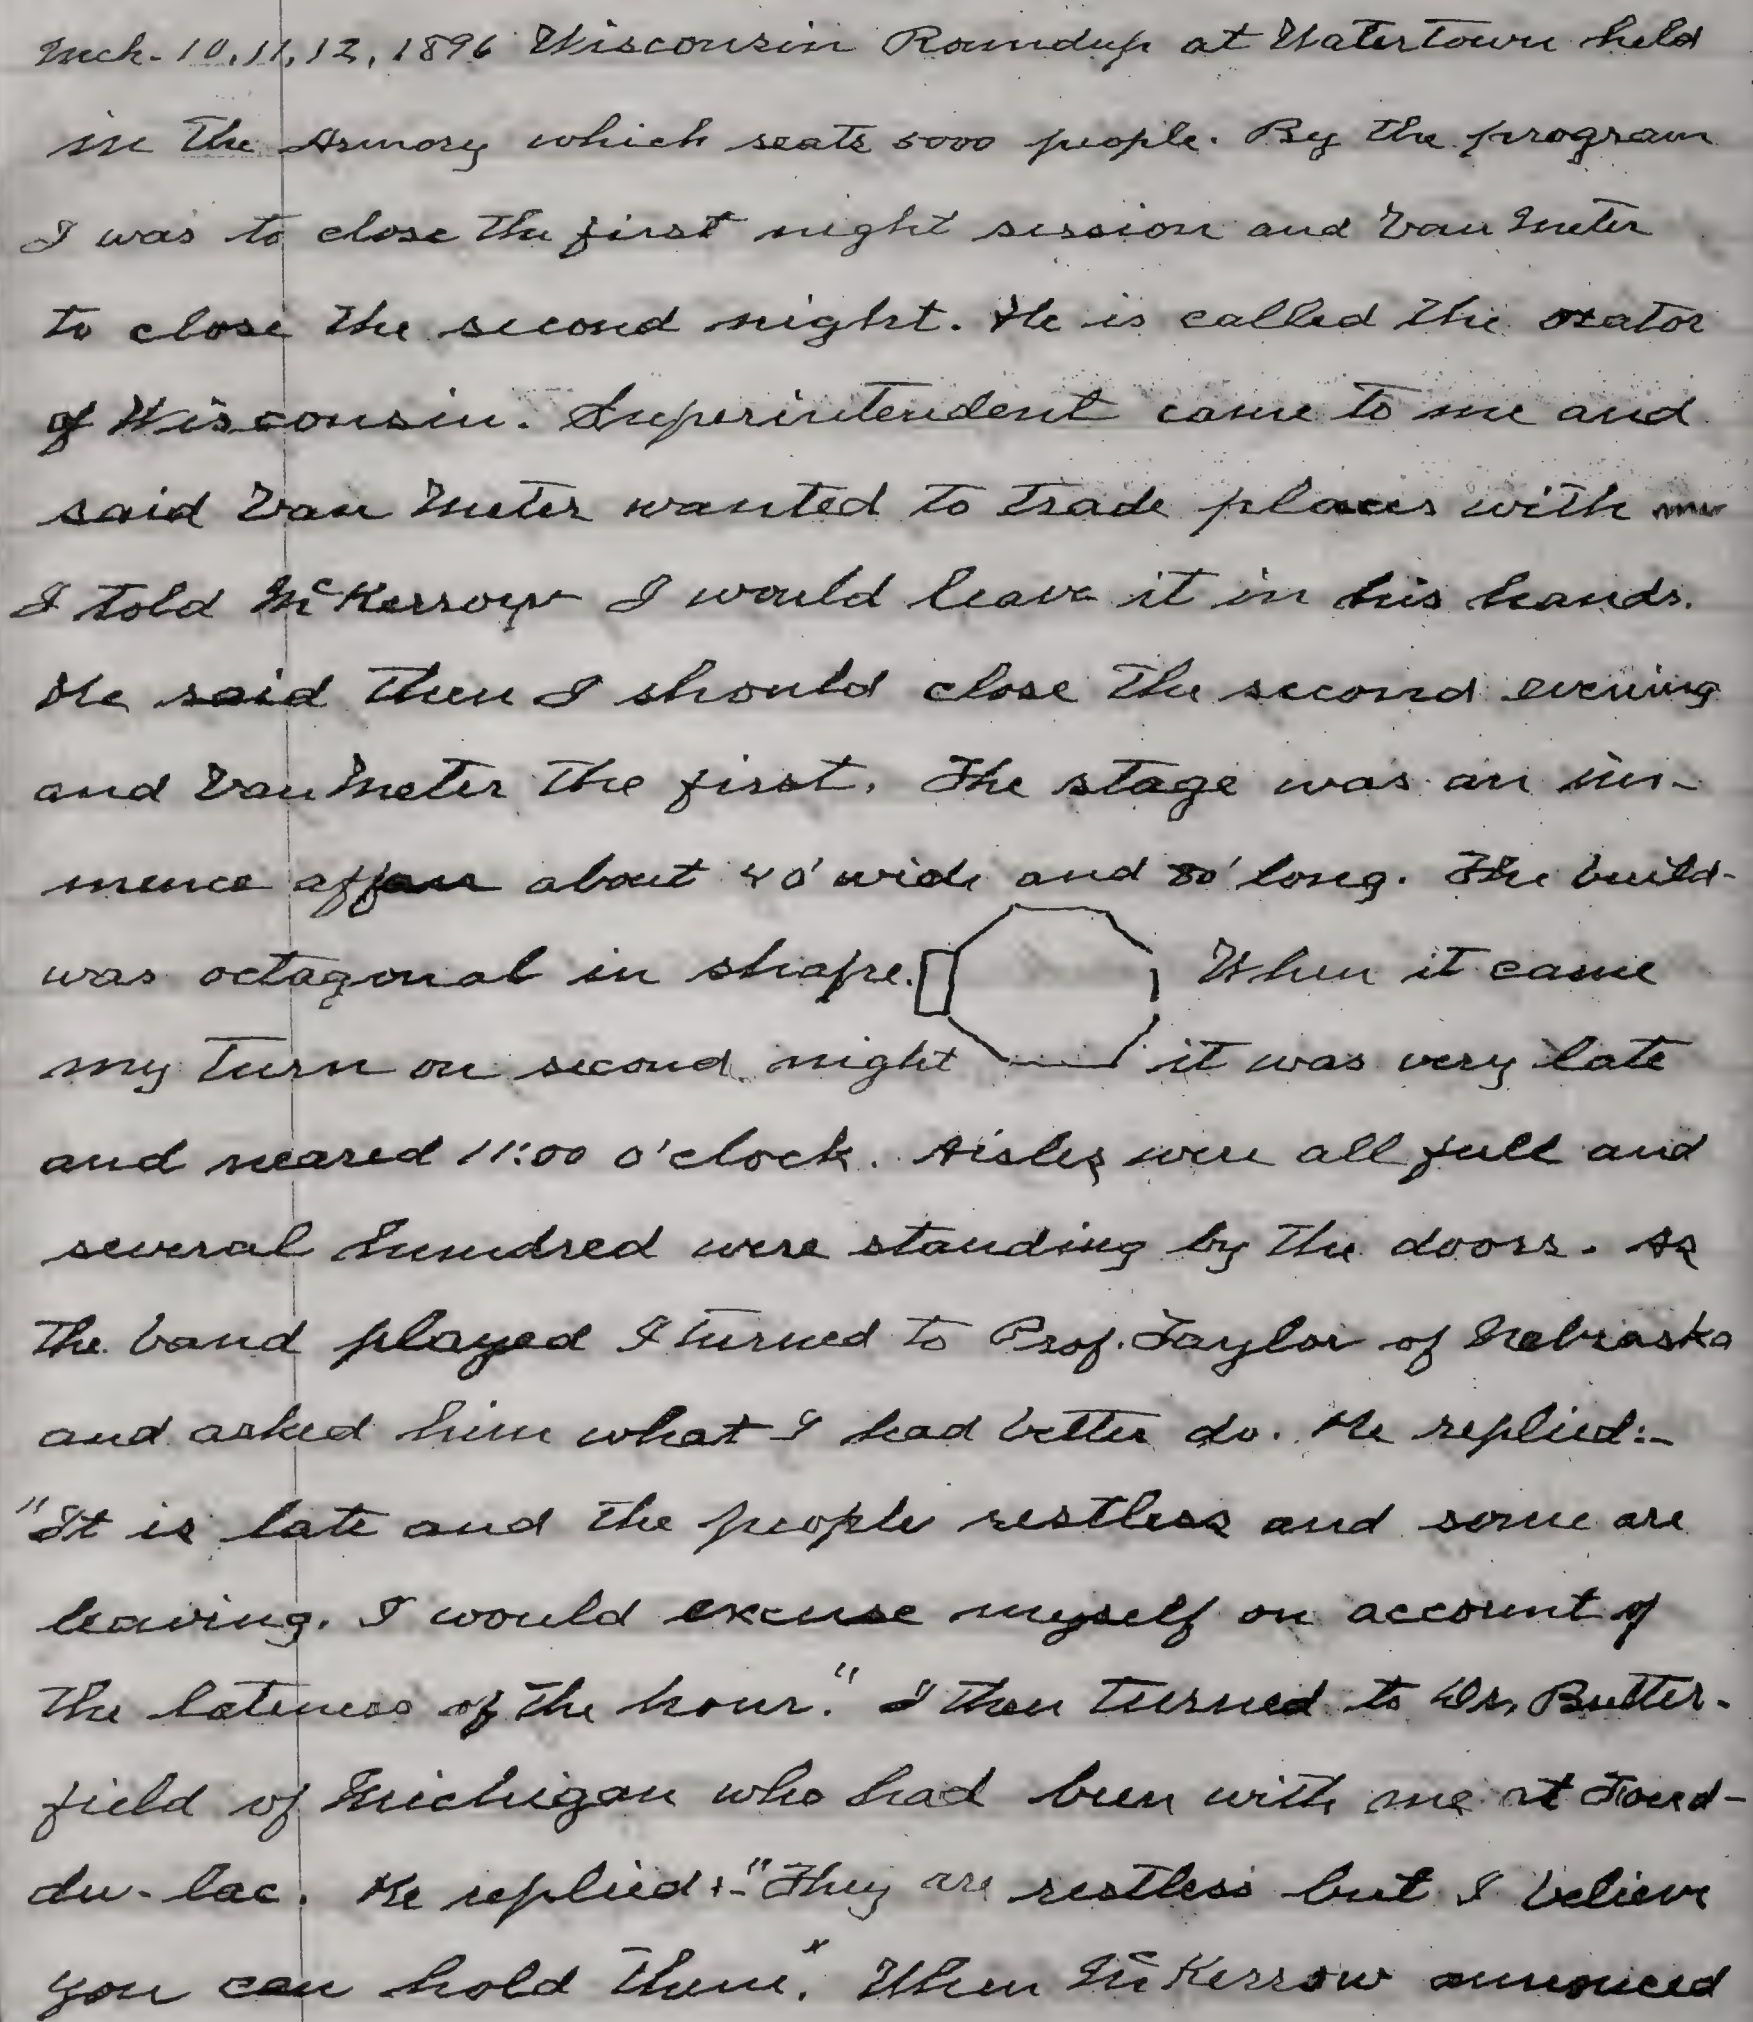 Mch. 10, 11, 12, 1896 Wisconsin Roundup at Watertown held
in the Armory which seats 5000 people. By the program
I was to close the first night session and Van Meter
to close the second night. He is called the orator
of Wisconsin. Superintendent came to me and
said Van Meter wanted to trade places with me
I told McKerrow I would leave it in his hands.
He said then I should close the second evening
and Van Meter the first. The stage was an im-
mence affair about 40' wide and 80' long. The build-
was octagonal in shape. When it came
my turn on second night it was very late
and neared 11:00 o'clock. Aisles were all full and
several hundred were standing by the doors. As
the band played I turned to Prof. Taylor of Nebraska
and asked him what I had better do. He replied:-
"It is late and the people restless and some are
leaving. I would excuse myself on account of
the lateness of the hour." I then turned to Dr. Butter-
field of Michigan who had been with me at Fond-
du-lac. He replied:-"They are restless but I believe
you can hold them." When McKerrow annonced